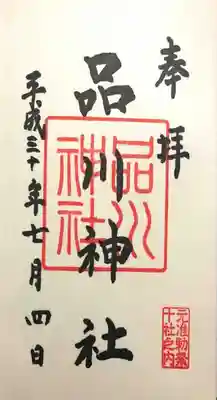 奉拝
品川神社
品川神社
平成三十年七月四日
元准勅祭
十社之内